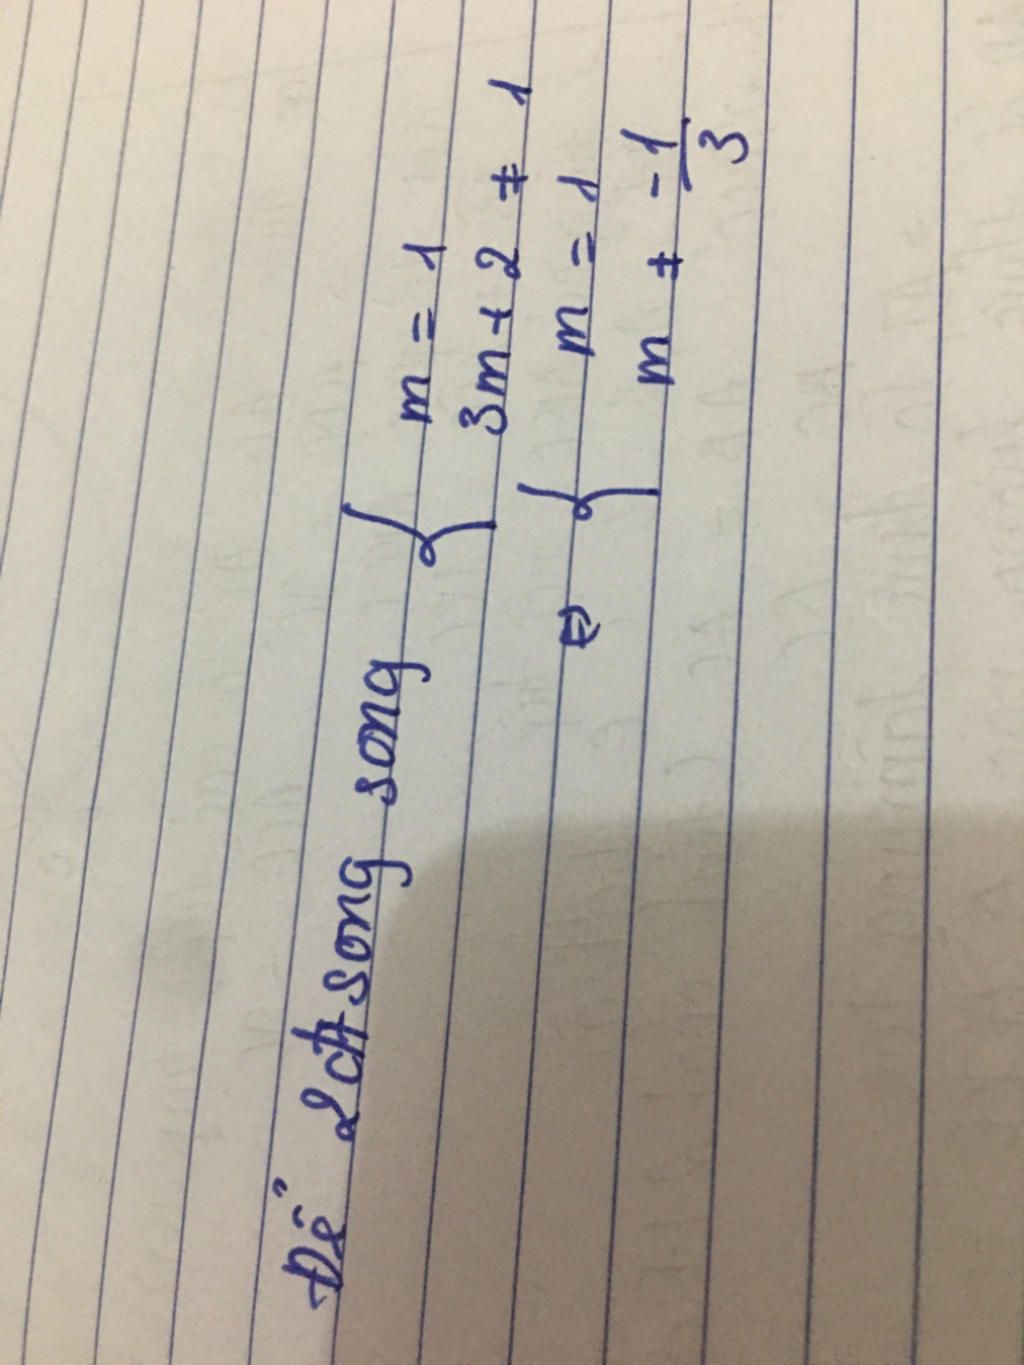 Để 2đt song song { m = 1
3m + 2 ≠ 1
⇔ { m = 1
m ≠ -1/3